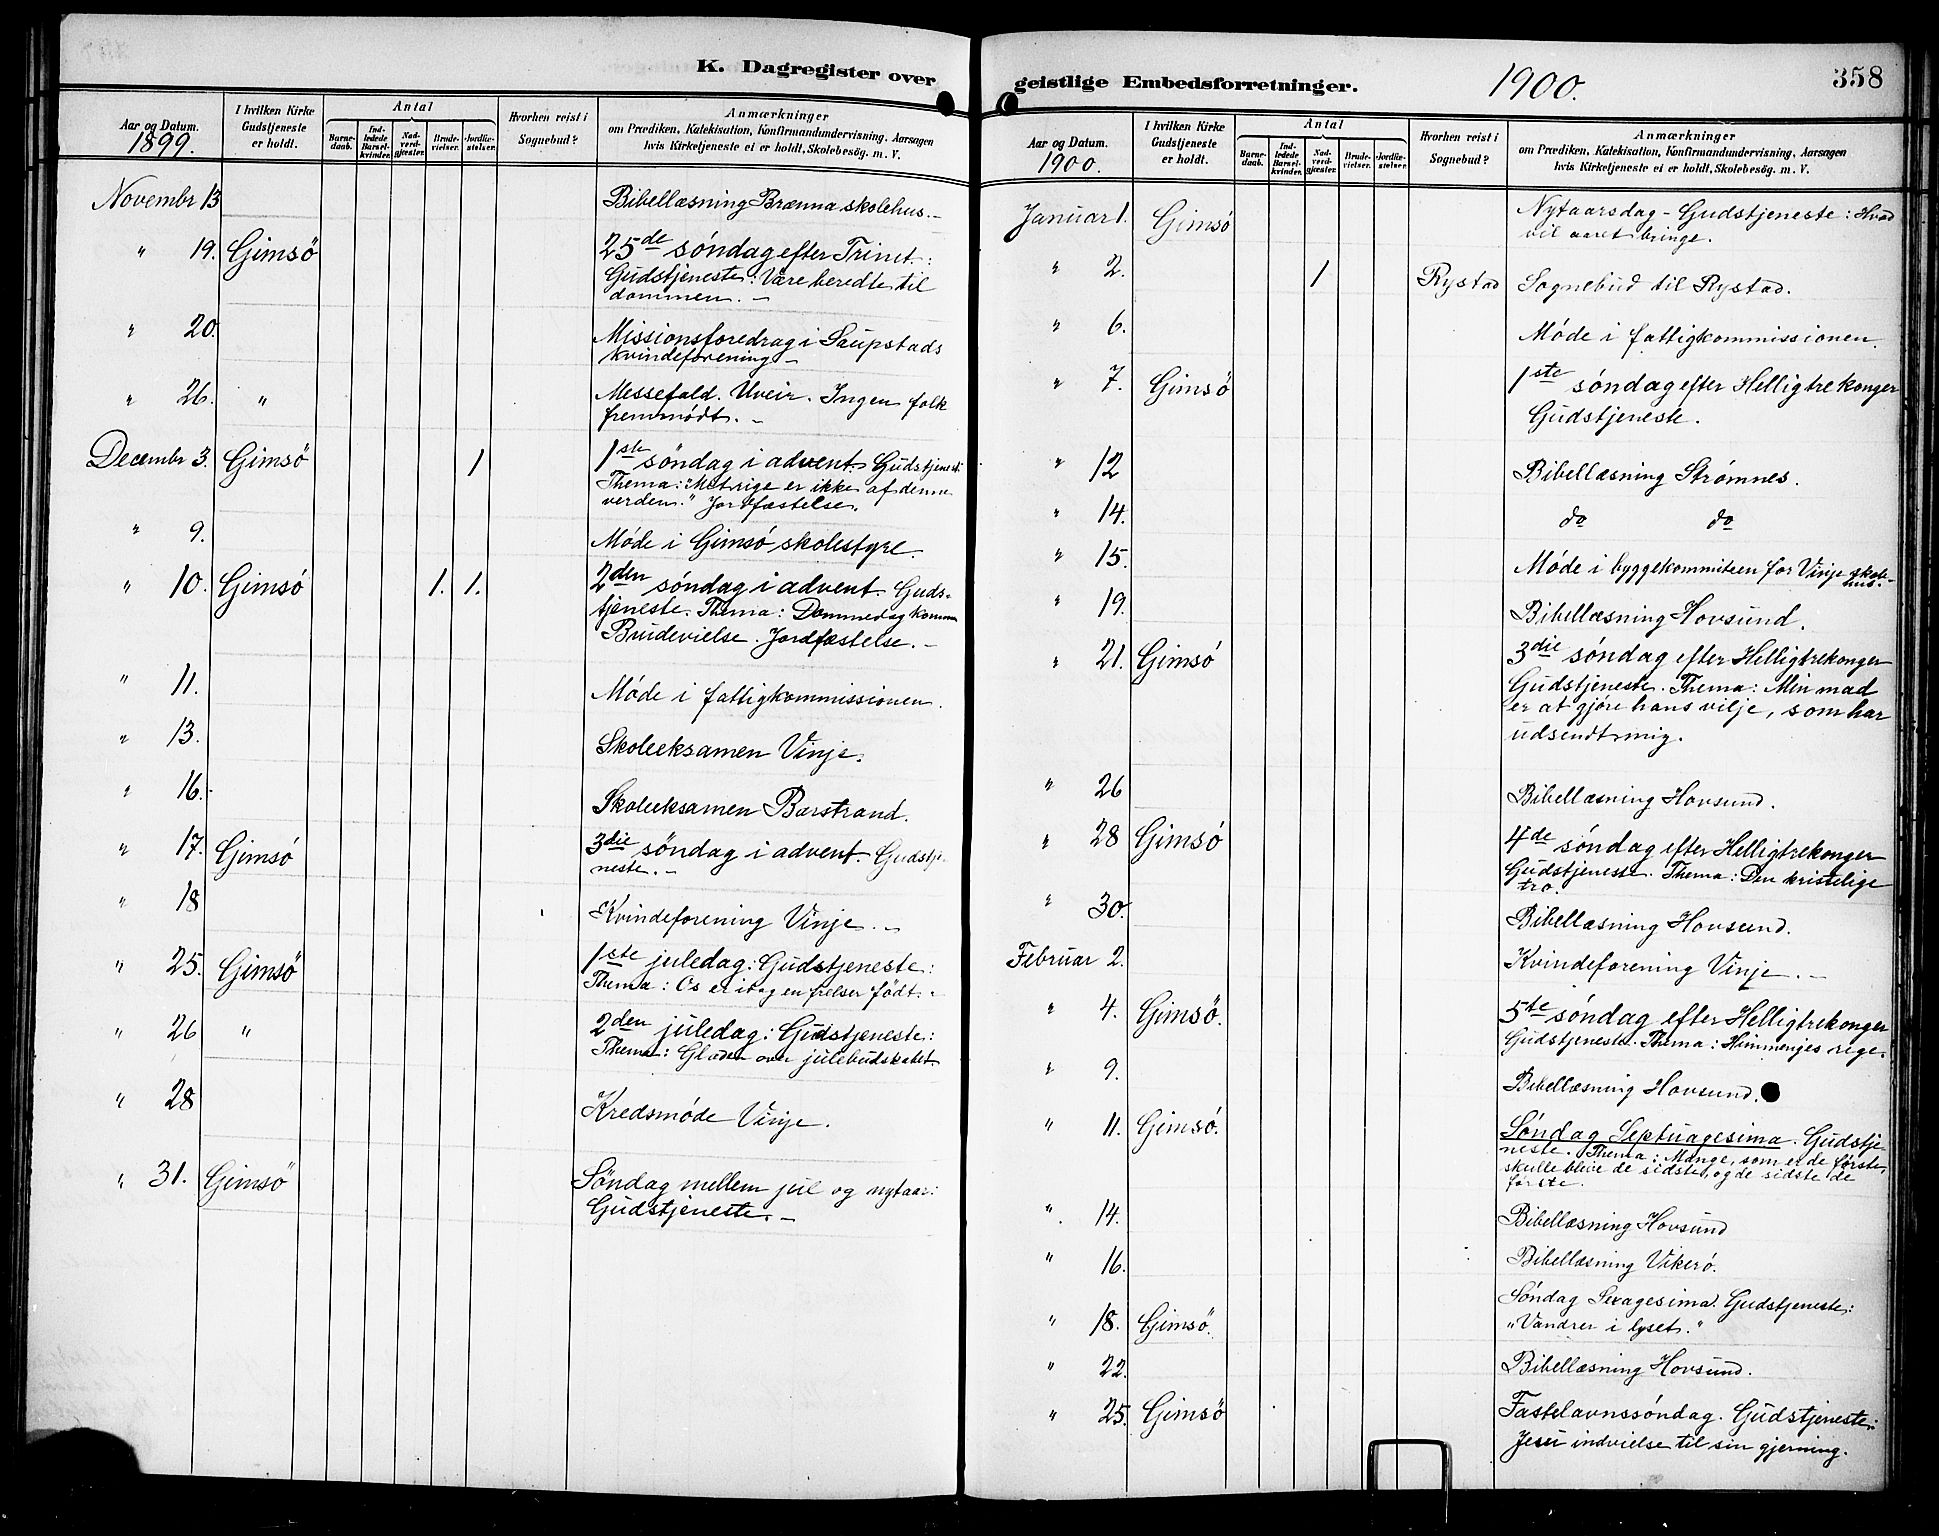 K. Dagregister over
Aar og Datum.
1899.
I hvilken Kirke
Gudstjeneste
er holdt.
Antal
Barne-
daab.
Ind-
ledede
Barsel-
kvinder.
Nad-
verd-
gjæster.
Brude-
vielser.
Jordfæ-
stelser.
Hvorhen reist i
Sognebud?
Anmærkninger
om Prædiken, Katekisation, Konfirmandundervisning, Aarsagen
hvis Kirketjeneste ei er holdt, Skolebesøg. m. V.
Novembr 13 Bibellæsning Brenna skolehus. –
" 19. Gimsö 25de søndag efter Trinit.:
Gudstjeneste: Være beredte til
dommen. –
" 20. Missionsforedrag i Saupstads
kvindeforening –
" 26. " Messefald. Uveir. Ingen folk
fremmødt. –
Decembr 3. Gimsö 1 1ste søndag i advent. Gudstjenest:
Thema: "Mit rige er ikke af denne
verden." Jordfæstelse.
" 9. Møde i Gimsø skolestyre.
" 10. Gimsö 1. 1. 2den søndag i advent. Guds-
tjeneste. Thema: Dommedag komme
Brudevielse. Jordfæstelse. –
" 11. Møde i fattigkommissionen.
" 13. Skoleeksamen Vinje.
" 16. Skoleeksamen Barstrand.
" 17. Gimsø 3die søndag i advent. Gudstje-
neste. –
" 18 Kvindeforening Vinje. –
" 25. Gimsö 1ste juledag: Gudstjeneste:
Thema: Os er idag en frelser født.
" 26 " 2den juledag: Gudstjeneste:
Thema: Glæden over julebudskabet.
" 28 Kredsmøde Vinje.
" 31. Gimsö Søndag mellem jul og nytaar:
Gudstjeneste. –
geistlige Embedsforretninger.
1900.
358
Aar og Datum.
1900.
I hvilken Kirke
Gudstjeneste
er holdt.
Antal
Barne-
daab.
Ind-
ledede
Barsel-
kvinder.
Nad-
verd-
gjæster.
Brude-
vielser.
Jordfæ-
stelser.
Hvorhen reist i
Sognebud?
Anmærkninger
om Prædiken, Katekisation, Konfirmandundervisning, Aarsagen
hvis Kirketjeneste ei er holdt, Skolebesøg. m. V.
Januar 1. Gimsø Nytaarsdag – Gudstjeneste: Hvad
vil aaret bringe.
" 2. 1 Rystad Sognebud til Rystad.
" 6. Møde i fattigkommissionen.
" 7. Gimsø 1ste søndag efter Helligtrekonger
Gudstjeneste.
" 12 Bibellæsning Strømnes.
" 14. do do
" 15. Møde i byggekommiteen for Vinje skole-
hus.
" 19. Bibellæsning Hovsund.
" 21. Gimsø 3die søndag efter Helligtrekonger
Gudstjeneste. Thema: Min mad
er at gjøre hans vilje, som har
udsendt mig.
" 26 Bibellæsning Hovsund.
" 28 Gimsø 4de søndag efter Helligtrekonger
Gudstjeneste. Thema: Den kristelige
tro.
" 30. Bibellæsning Hovsund.
Februar 2. Kvindeforening Vinje. –
" 4. Gimsö. 5te søndag efter Helligtrekonger
Gudstjeneste. Thema: Himmeriges rige.
" 9. Bibellæsning Hovsund.
" 11. Gimsø. Søndag Septuagesima. Gudstje-
neste. Thema: Mange, som er de første,
skulle blive de sidste, og de sidste de
første.
" 14. Bibellæsning Hovsund
" 16. Bibellæsning Vikerø.
" 18. Gimsö. Søndag Sexagesima. Gudstjeneste:
"Vandrer i lyset."
" 22. Bibellæsning Hovsund.
" 25. Gimsø Fastelavnssøndag. Gudstjeneste:
Jesu indvielse til sin gjerning.